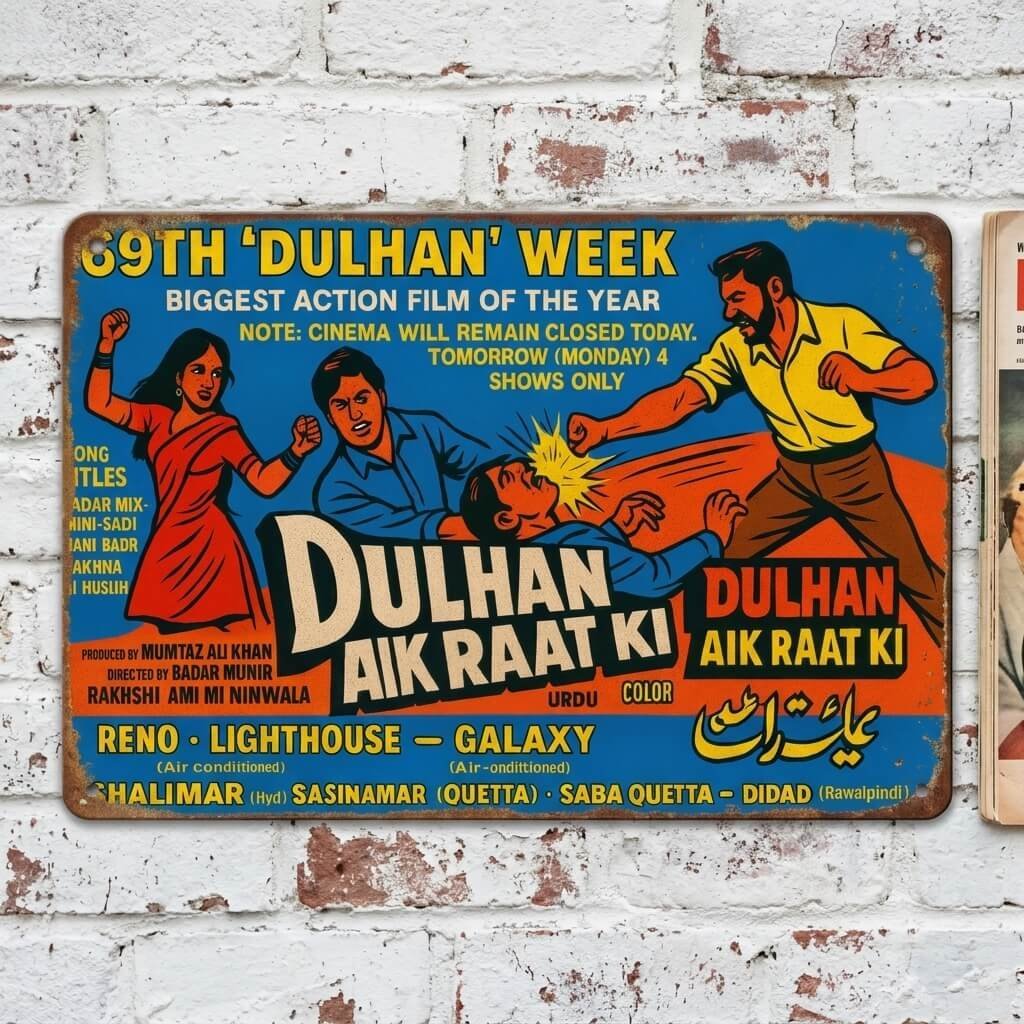 69TH 'DULHAN' WEEK
BIGGEST ACTION FILM OF THE YEAR
NOTE: CINEMA WILL REMAIN CLOSED TODAY.
TOMORROW (MONDAY) 4
SHOWS ONLY
ONG
ITLES
ADAR MIX-
HINI-SADI
IANI BADR
AKHNA
I HUSLIH
DULHAN
AIK RAAT KI
DULHAN
AIK RAAT KI
PRODUCED BY MUMTAZ ALI KHAN
DIRECTED BY BADAR MUNIR
RAKHSHI AMI MI NINWALA
URDU COLOR
RENO · LIGHTHOUSE – GALAXY
(Air condiitioned) (Air-ondittioned)
SHALIMAR (Hyd) SASINAMAR (QUETTA) · SABA QUETTA – DIDAD (Rawalpindi)